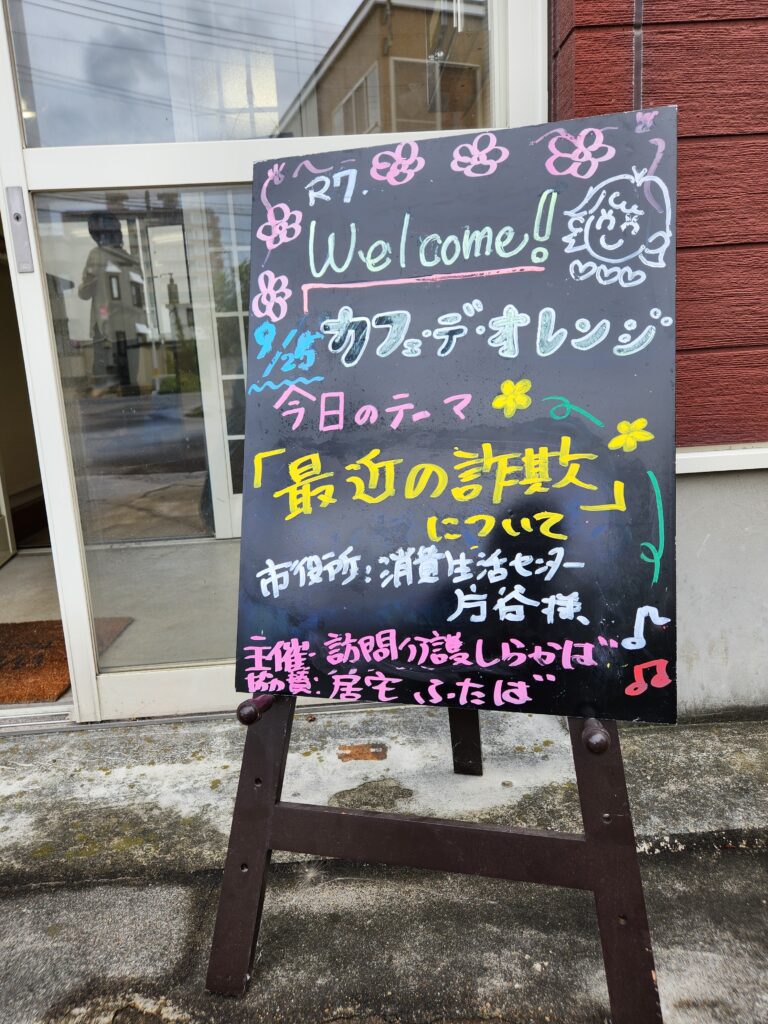 R7.
Welcome!
9/25 カフェ・デ・オレンジ
今日のテーマ
「最近の詐欺」
について
市役所：消費生活センター
片谷様、
主催：訪問介護しらかば
協賛：居宅ふたば